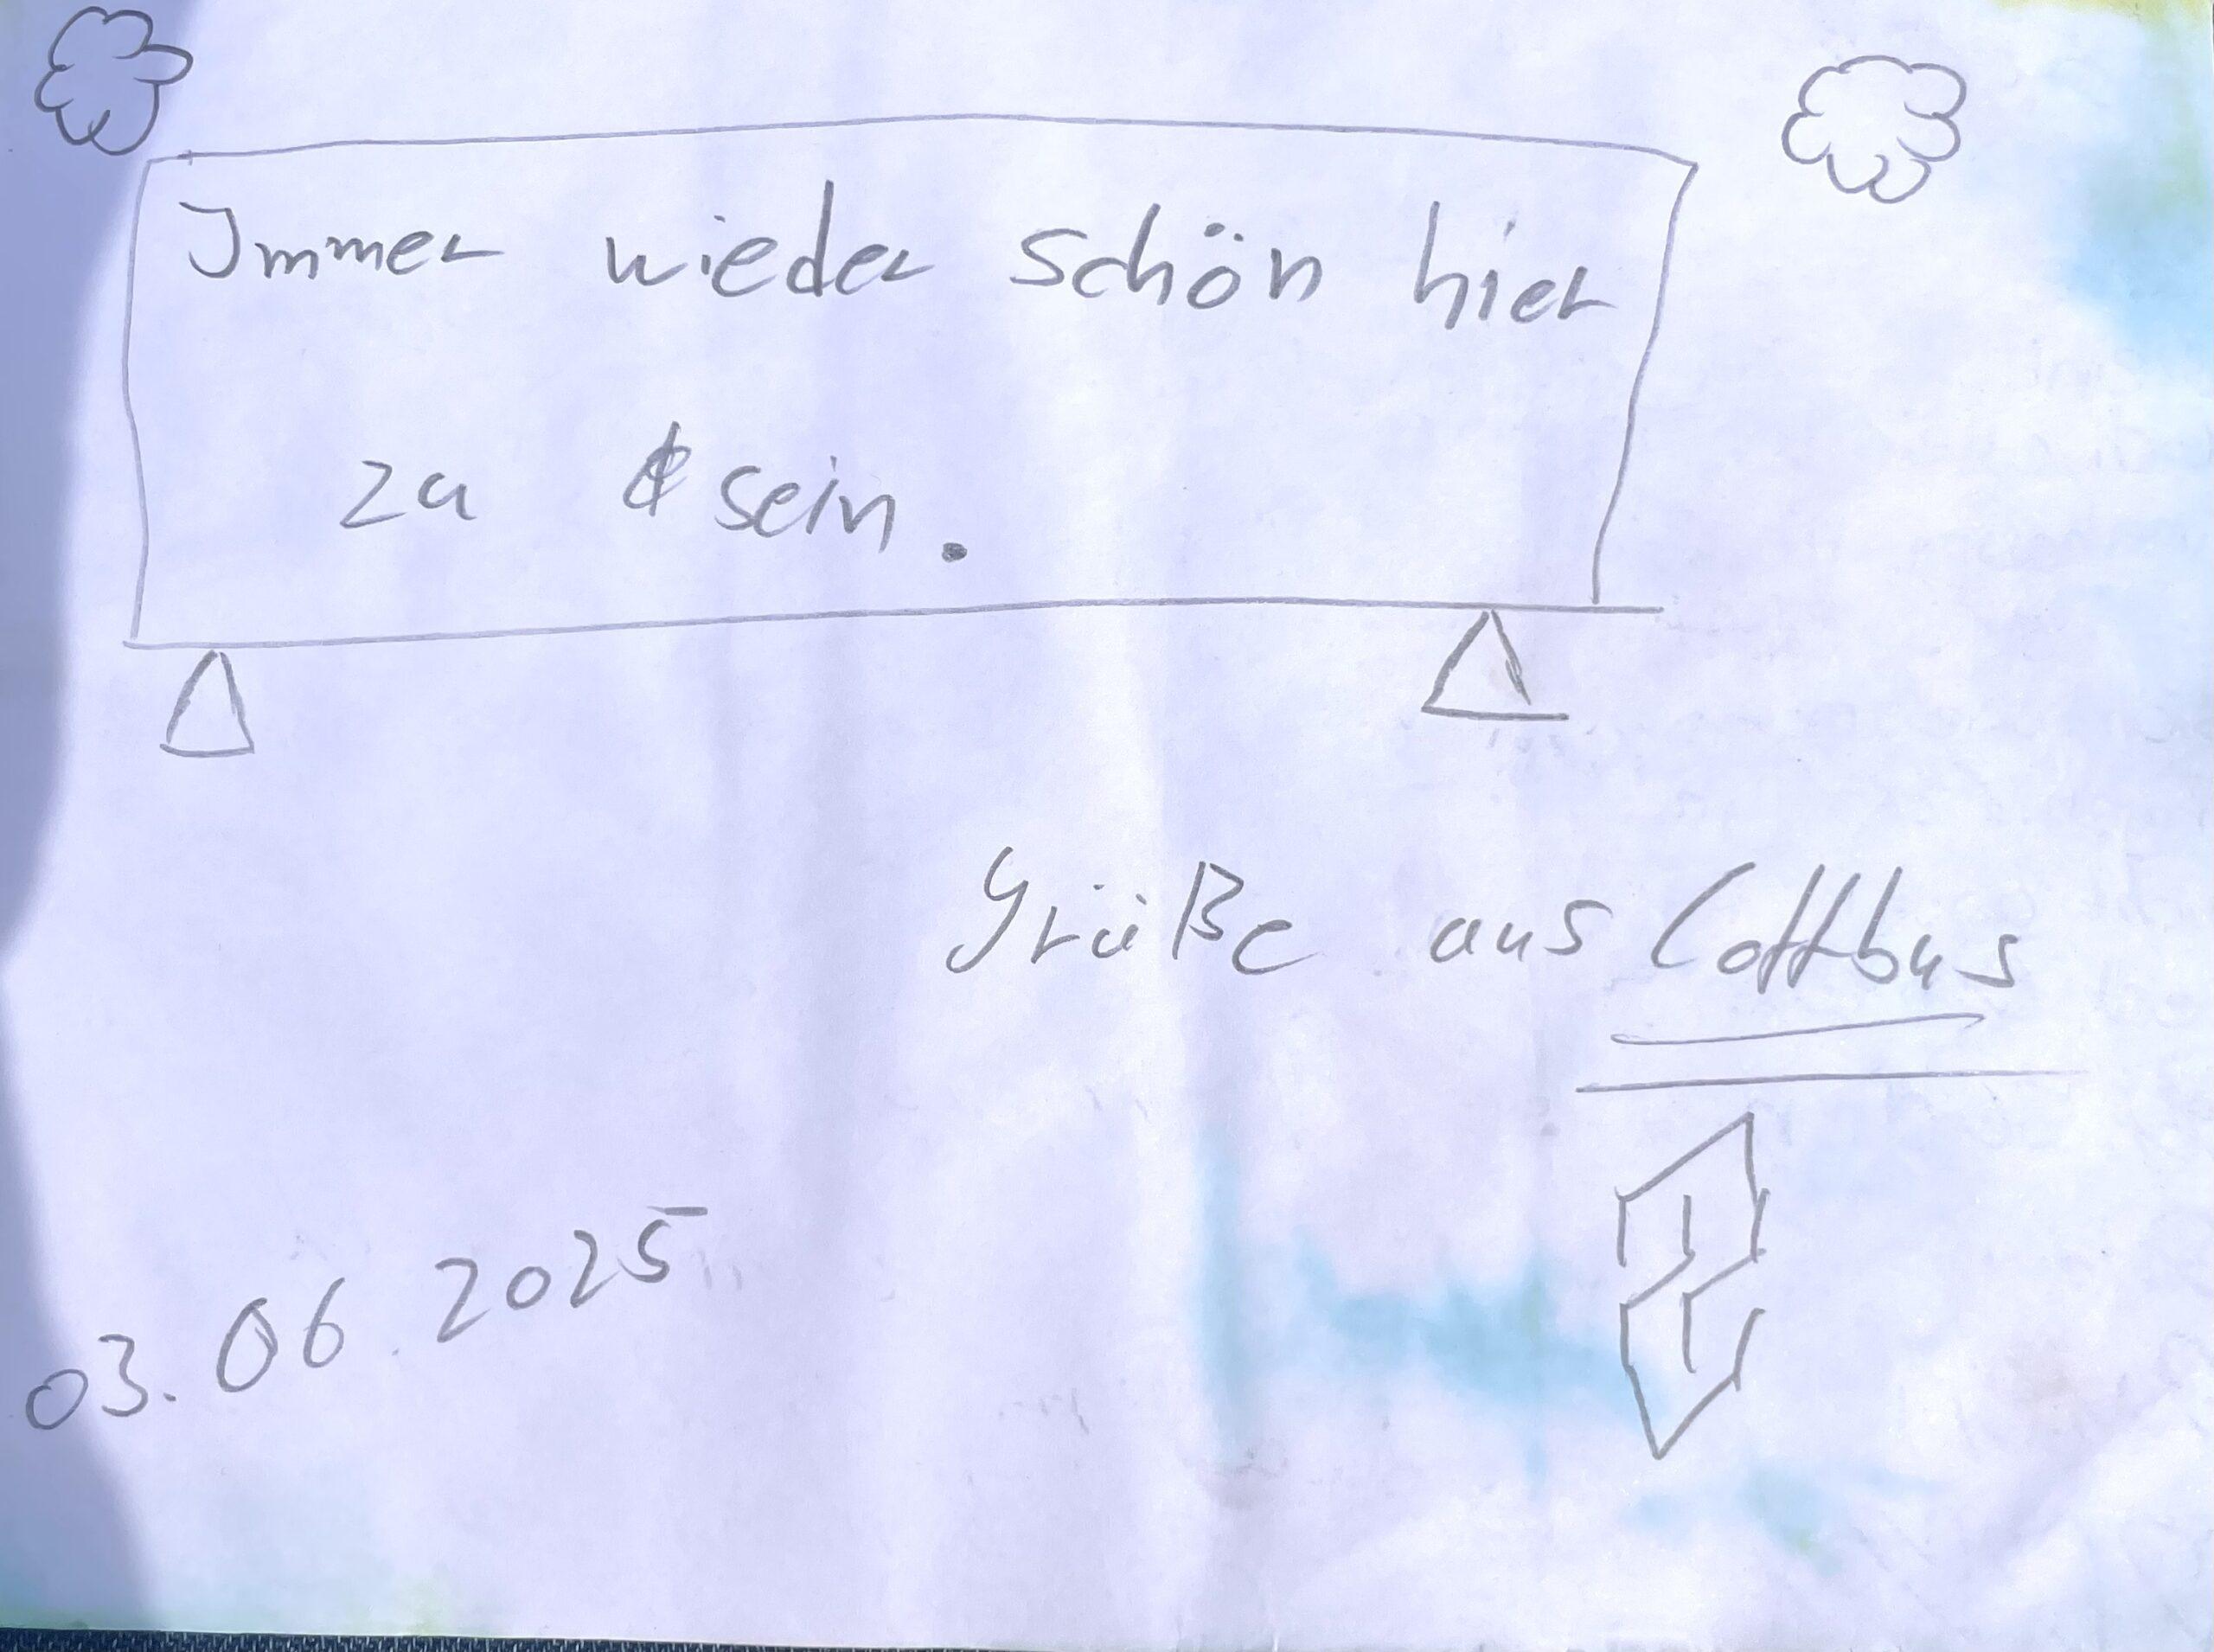 Immer wieder schön hier
zu sein.
Grüße aus Cottbus
03.06.2025